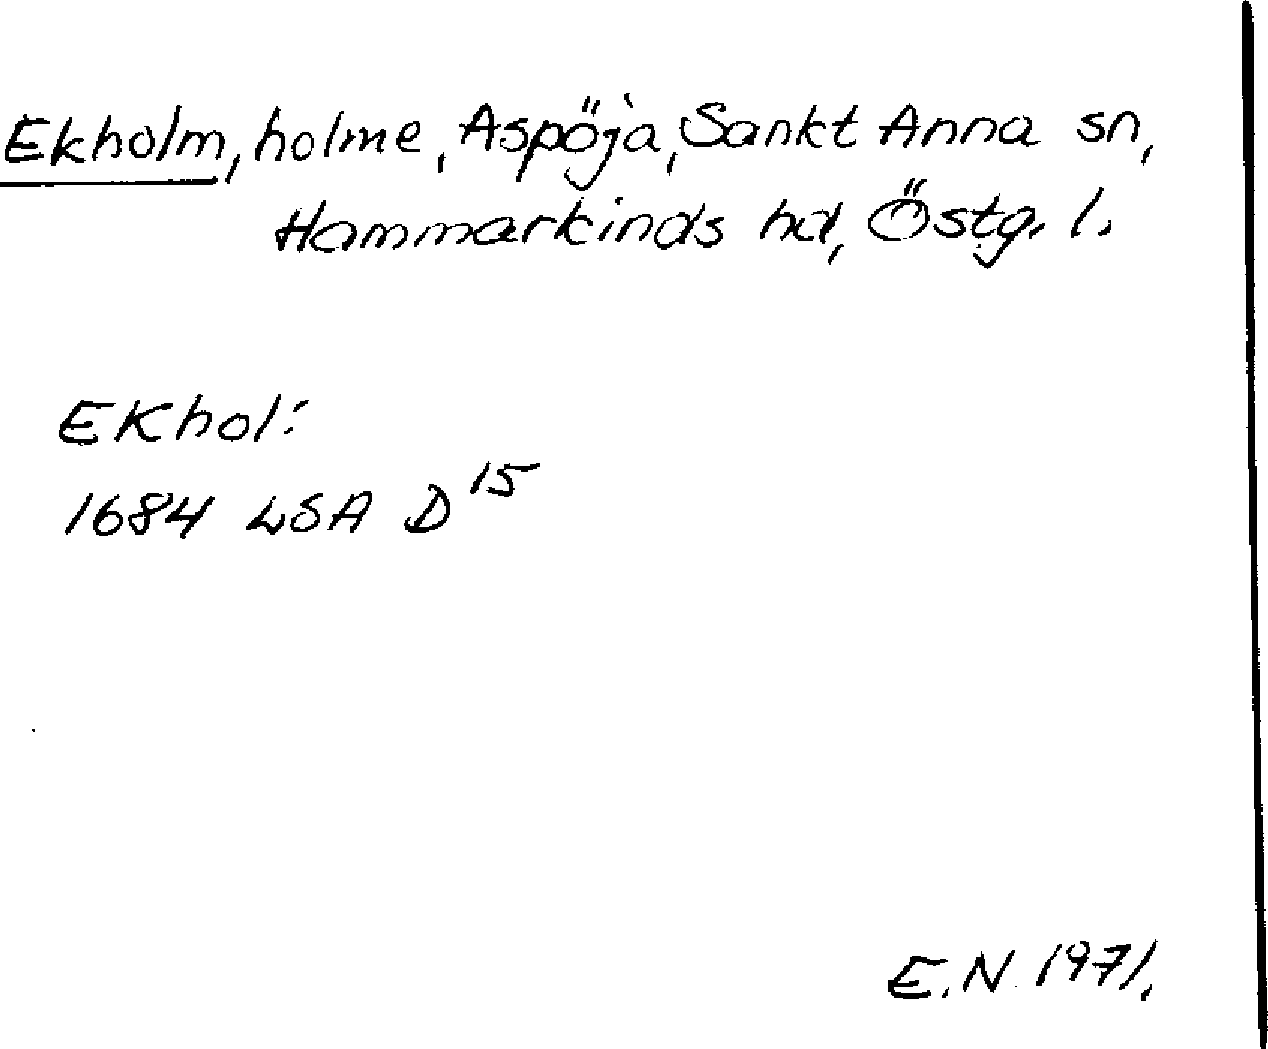 Ekholm, holme, Aspöja, Sankt Anna sn,
Hammarkinds hd, Östg. l.
Ekhol:
1684 LSA D 15
E.N. 1971.